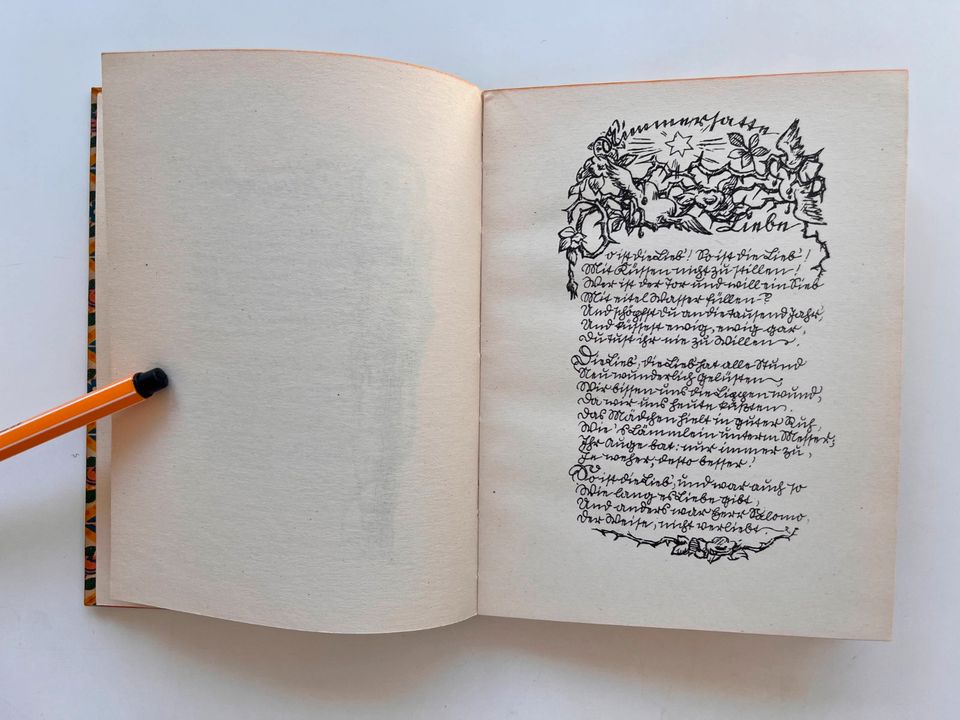 Nimmersatte
Liebe
So ist die Lieb! So ist die Lieb!
Mit Küssen nicht zu stillen!
Wer ist der Tor und will ein Sieb
Mit eitel Wasser füllen?
Und schöpfst du an die tausend Jahr,
Und küssest ewig, ewig gar,
Du tust ihr nie zu Willen.
Die Lieb, die Lieb hat alle Stund
Neu wunderlich Gelüsten,
Wir bissen uns die Lippen wund,
Da wir uns heute küßten.
Das Mädchen hielt in guter Ruh,
Wie's Lämmlein unterm Messer;
Ihr Auge bat: nur immer zu,
Je weher, desto besser!
So ist die Lieb, und war auch so
Wie lang es Liebe gibt,
Und anders war Herr Salomo,
Der Weise, nicht verliebt.